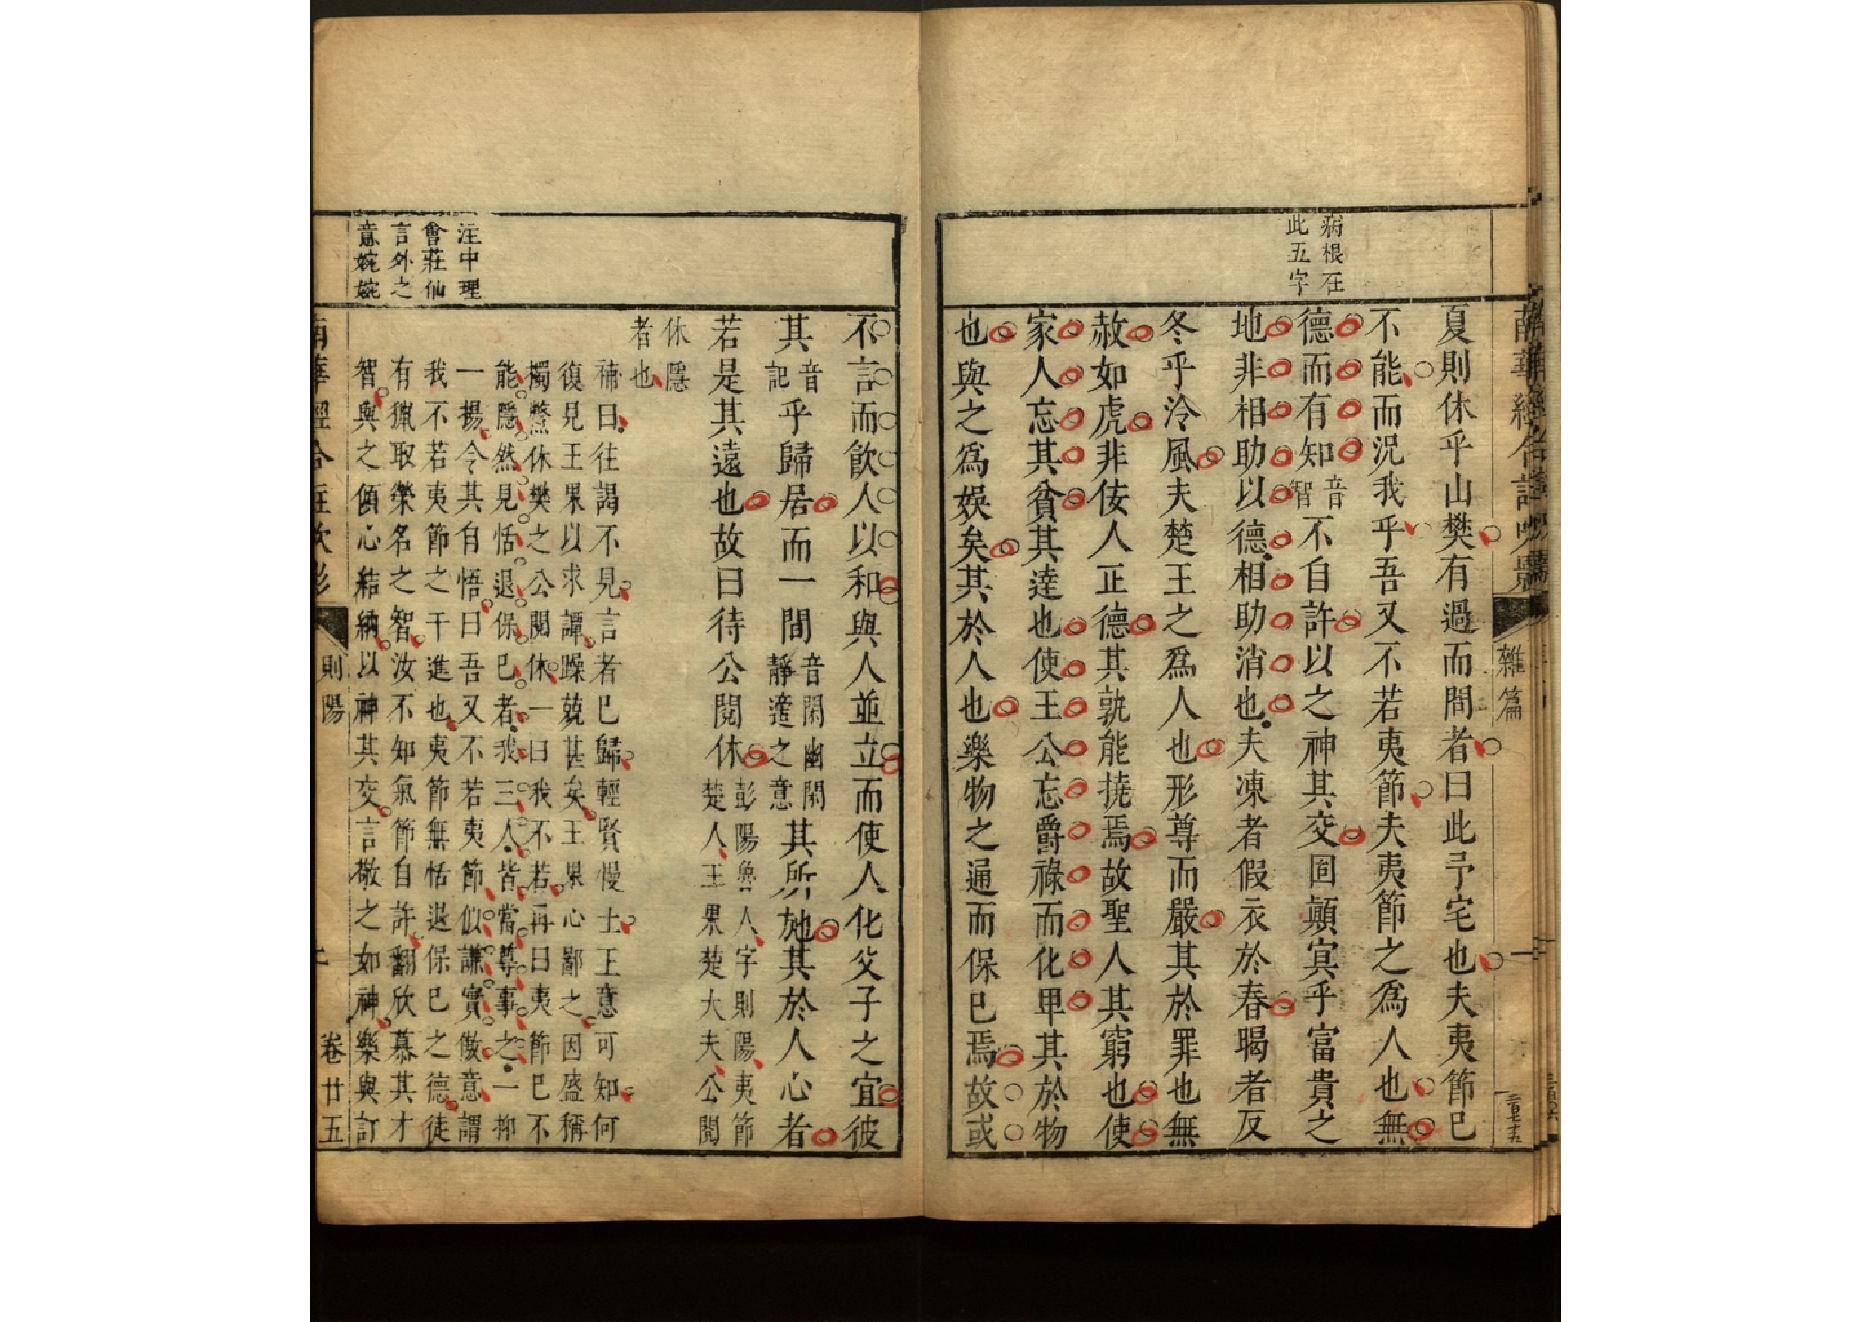 病根在
此五字
夏則休乎山樊有過而問者曰此予宅也夫夷節已
不能而況我乎吾又不若夷節夫夷節之為人也無
德而有知音智不自許以之神其交固顛冥乎富貴之
地非相助以德相助消也夫凍者假衣於春暍者反
冬乎泠風夫楚王之為人也形尊而嚴其於罪也無
赦如虎非佞人正德其孰能撓焉故聖人其窮也使
家人忘其貧其達也使王公忘爵祿而化卑其於物
也與之為娛矣其於人也樂物之通而保已焉故或
雜篇
不言而飲人以和與人並立而使人化父子之宜彼
其音記乎歸居而一間音閑幽閑靜漟之意其所施其於人心者
若是其遠也故曰待公閱休彭陽魯人字則陽夷節楚人王果楚大夫公閱
休隱
者也
補曰往謁不見言者巳歸輕賢慢士王意可知何
復見王果以求譚躁兢甚矣王果心鄙之因盛稱
獨鱉休樊之公閱休一曰我不若再曰夷節巳不
能隱然見恬退保巳者我三人皆當尊事之一抑
一揚令其自悟曰吾又不若夷節似謙實傲意謂
我不若夷節之干進也夷節無恬退保巳之德徒
有獵取榮名之智汝不知氣節自許翻欣慕其才
智與之傾心結納以神其交言敬之如神樂與訂
注中理
會莊仙
言外之
意婉婉
則陽
卷廿五